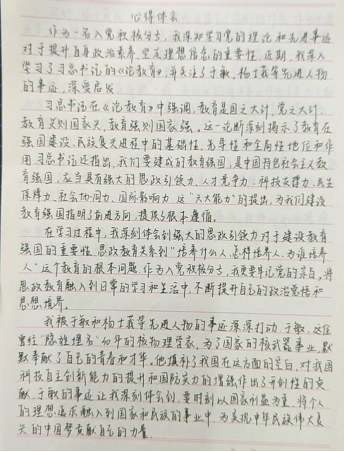 心得体会
作为一名入党积极分子，我深知学习党的理论和先进事迹
对于提升自身政治素养、坚定理想信念的重要性。近期，我深入
学习了习总书记的《论教育》，并关注了于敏、杨士莪等先进人物
的事迹，深受启发。
习总书记在《论教育》中强调，教育是国之大计、党之大计，
教育兴则国家兴，教育强则国家强。这一论断深刻揭示了教育在
强国建设、民族复兴进程中的基础性、先导性和全局性地位和作
用。习总书记还指出，我们要建成的教育强国，是中国特色社会主义教
育强国，应当具有强大的思政引领力、人才竞争力、科技支撑力、民生
保障力、社会协同力、国际影响力。这“六大能力”的提出，为我们建设
教育强国指明了前进方向，提供了根本遵循。
在学习过程中，我深刻体会到强大的思政引领力对于建设教育
强国的重要性。思政教育关系到“培养什么人、怎样培养人、为谁培养
人”这个教育的根本问题。作为入党积极分子，我更要牢记党的宗旨，将
思政教育融入到日常的学习和生活中，不断提升自己的政治觉悟和
思想境界。
我被于敏和杨士莪等先进人物的事迹深深打动。于敏，这位
曾经“隐姓埋名”的核物理学家，为了国家的核武器事业，默
默奉献了自己的青春和才华。他填补了我国在这方面的空白，对我国
科技自主创新能力的提升和国防实力的增强作出了开创性的贡
献。于敏的事迹让我深刻体会到，要时刻以国家利益为重，将个人
的理想追求融入到国家和民族的事业中，为实现中华民族伟大复
兴的中国梦贡献自己的力量。